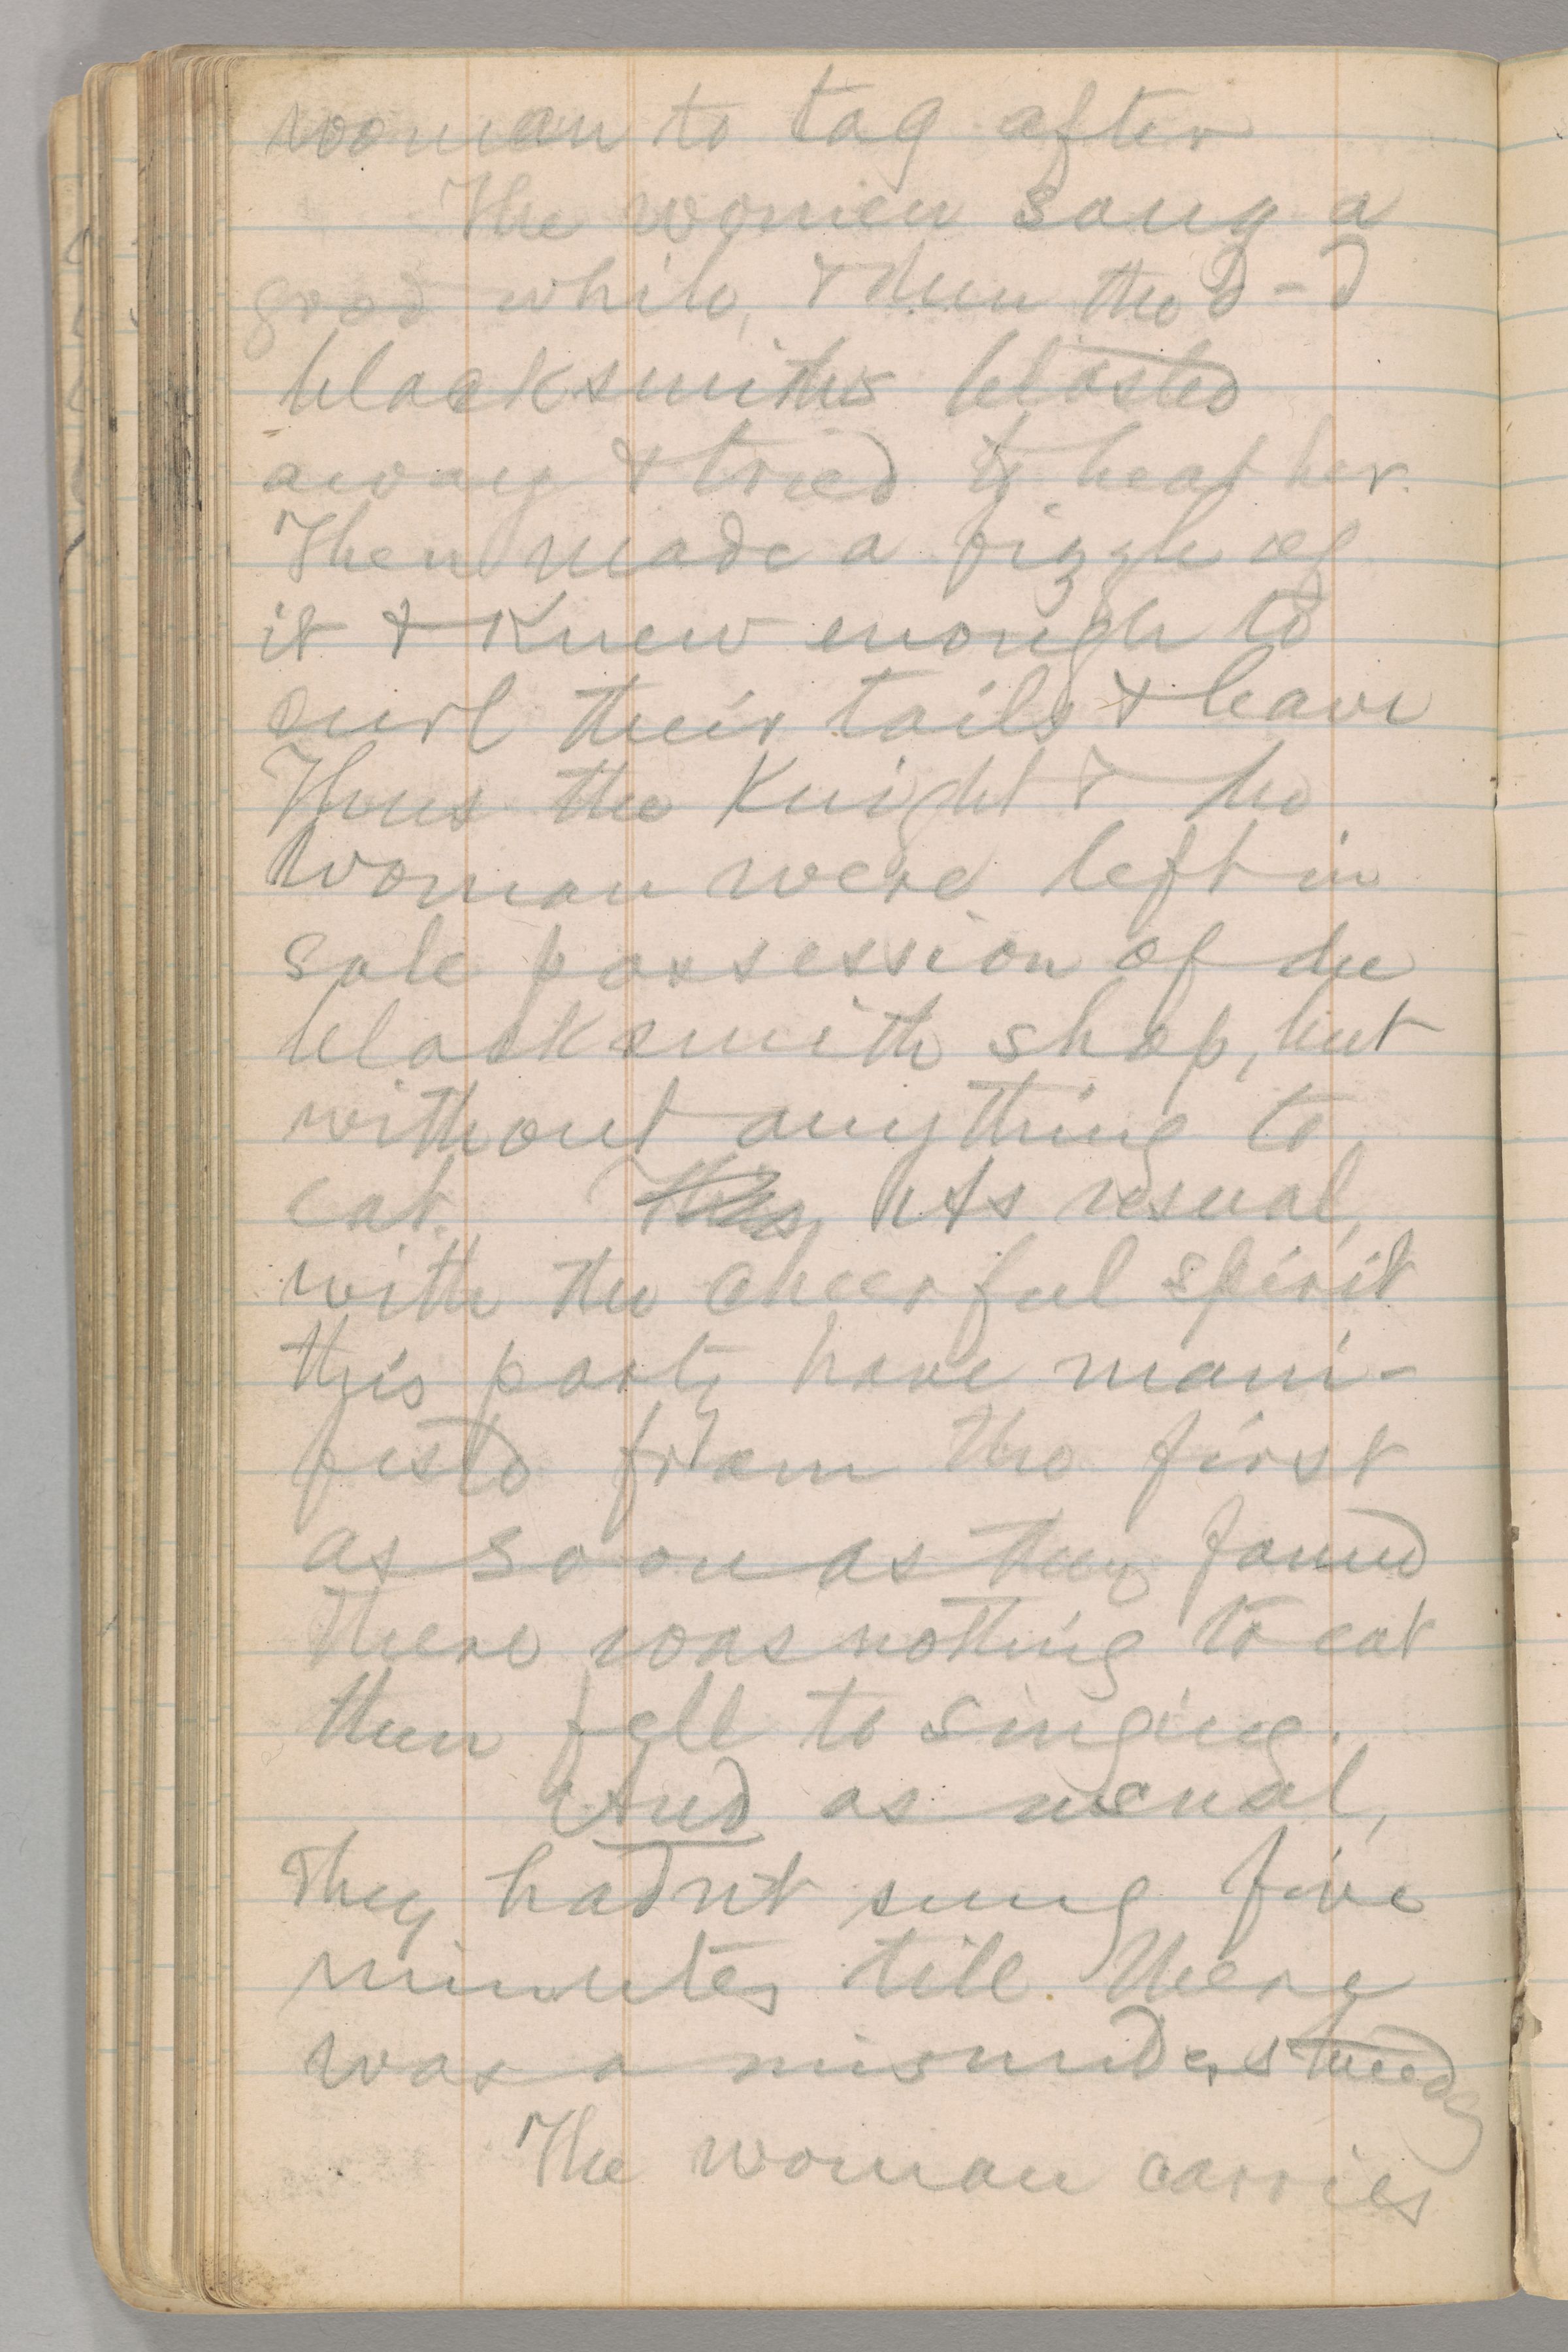 woman to tag after
The women sang a
good while, & then the d-d
blacksmiths blasted
away & tried to beat her.
Then made a fizzle of
it & knew enough to
curl their tails & leave
Thus the Knight & the
woman were left in
sole possession of the
blacksmith shop, but
without anything to
eat. This As usual,
with the cheerful spirit
this party have mani-
festd from the first
as soon as they found
there was nothing to eat
then fell to singing.
And as usual,
They hadn't sung five
minutes till there
was a misunderstandg
The woman carries